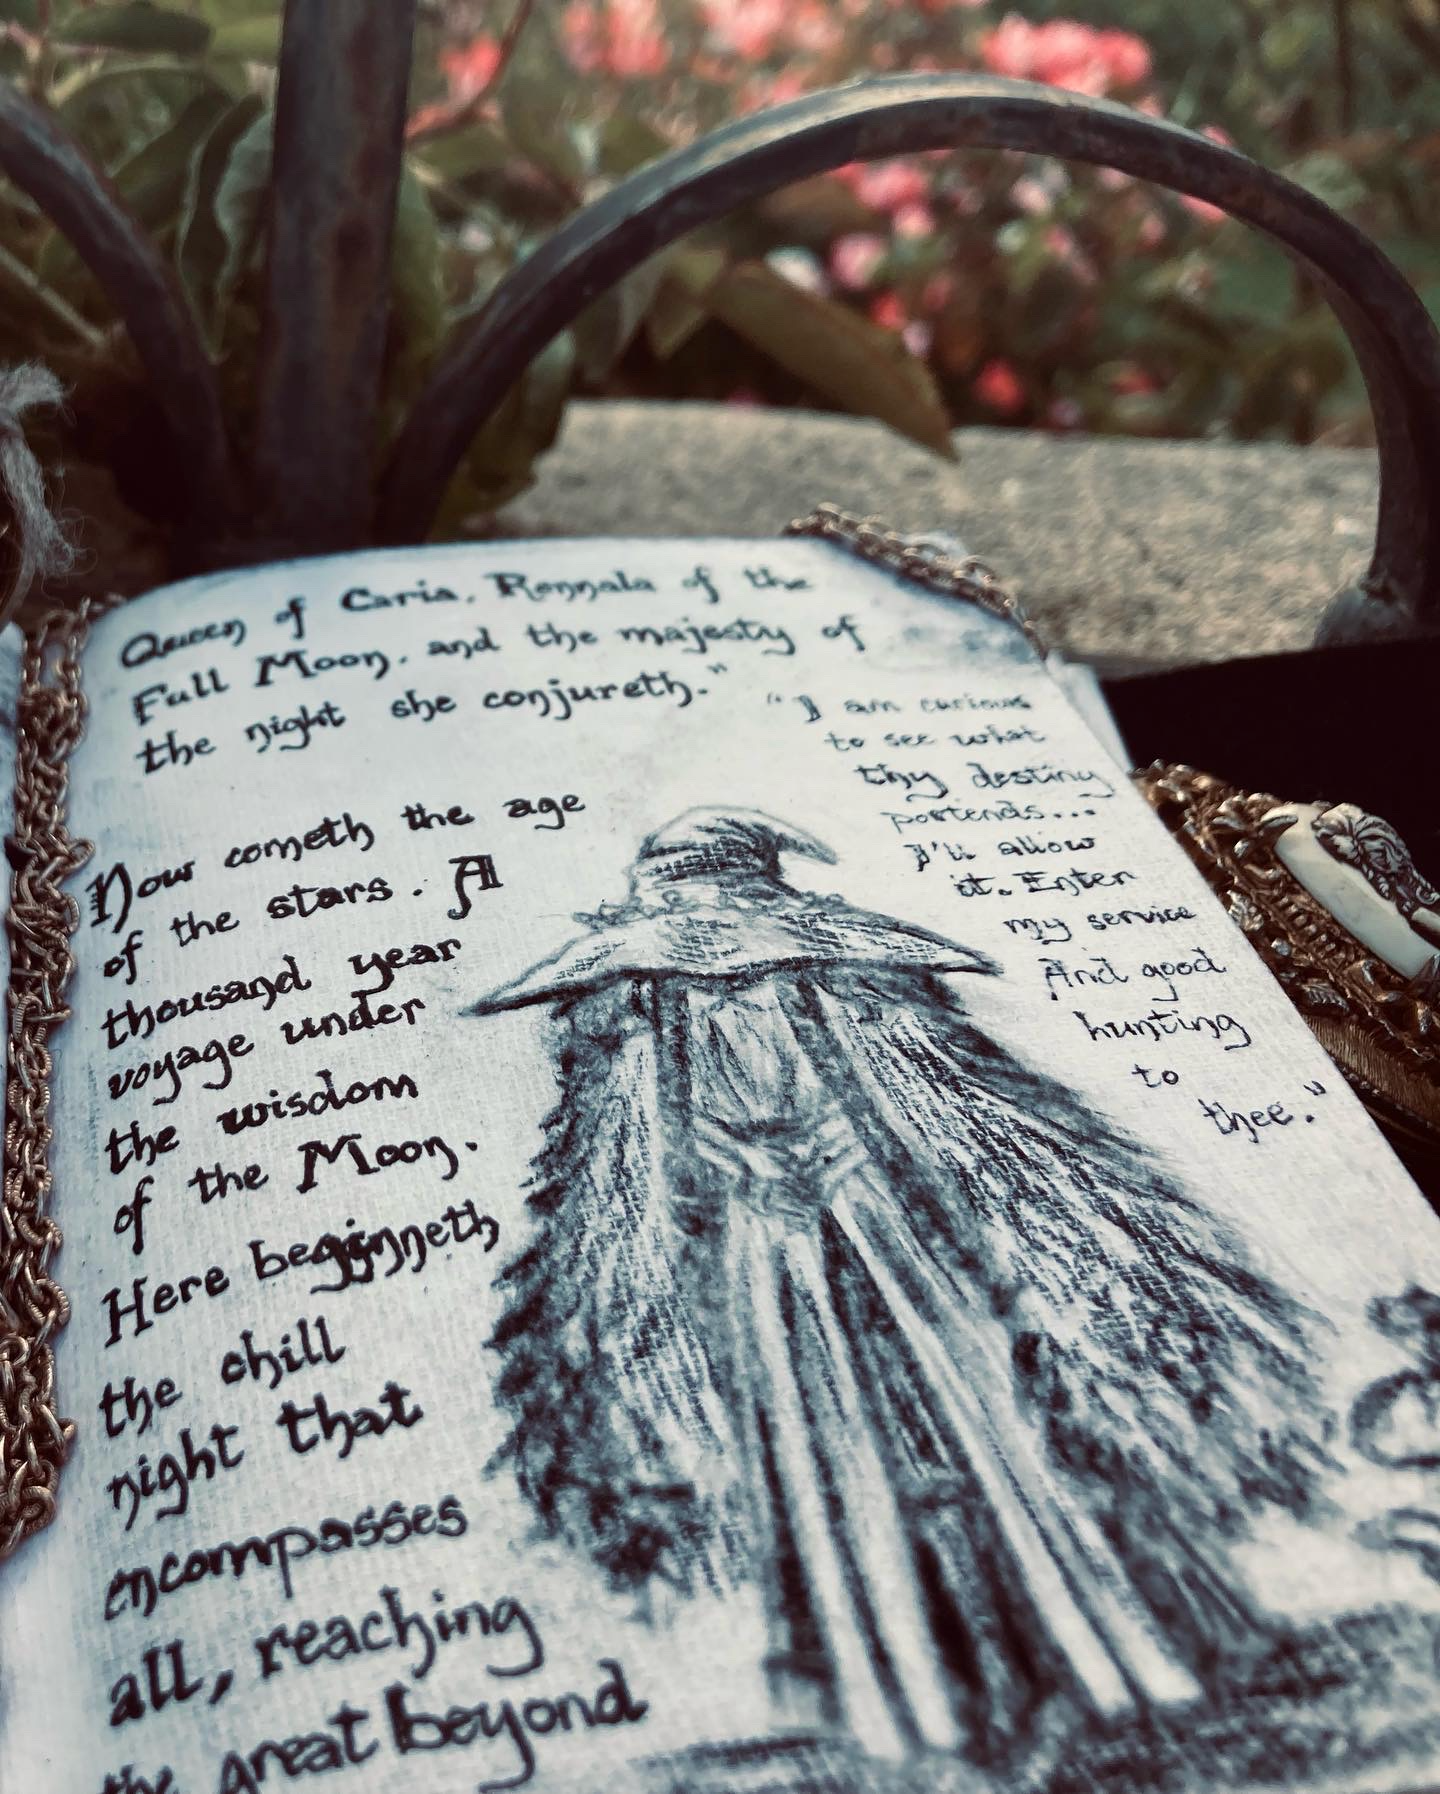 Queen of Caria, Rennala of the
Full Moon, and the majesty of
the night she conjureth."
Now cometh the age
of the stars. A
thousand year
voyage under
the wisdom
of the Moon.
Here beginneth
the chill
night that
encompasses
all, reaching
the great beyond
"I am curious
to see what
thy destiny
portends...
I'll allow
it. Enter
my service
And good
hunting
to
thee."